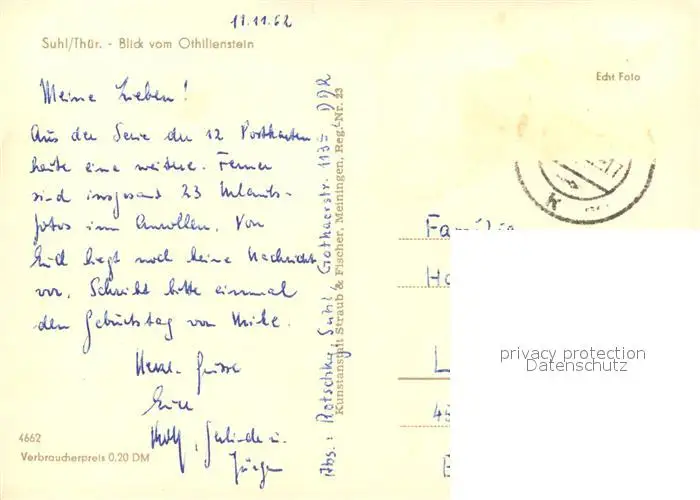 11.11.62
Suhl/Thür. - Blick vom Othilienstein
Echt Foto
Meine Lieben!
Aus der Serie der 12 Postkarten
heute eine weitere. Ferner
sind insgesamt 23 Urlaubs-
fotos im Anrollen. Von
Euch liegt noch keine Nachricht
vor. Schreibt bitte einmal
den Geburtstag von
Herzl. Grüsse
Eure
Rolf, Gerlinde u.
Jürgen
Abs.: Rotschky, Suhl, Gothaerstr. 113 DDR
Kunstanstalt Straub & Fischer, Meiningen, Reg.-Nr. 23
Familie
Ho
L
45
4662
Verbraucherpreis 0,20 DM
privacy protection
Datenschutz